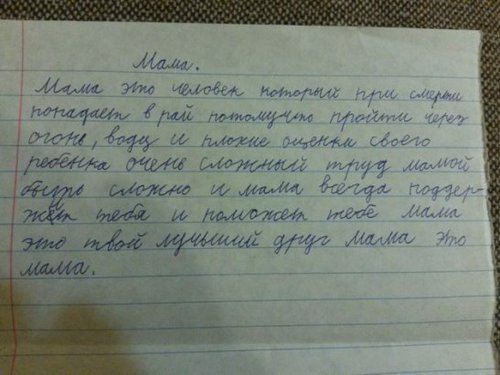 Мама.
Мама это человек который при смерти
попадает в рай потомучто пройти через
огонь, воду и плохие оценки своего
ребёнка очень сложный труд мамой
быть сложно и мама всегда поддер-
жит тебя и поможет тебе мама
это твой лучьший друг мама это
мама.